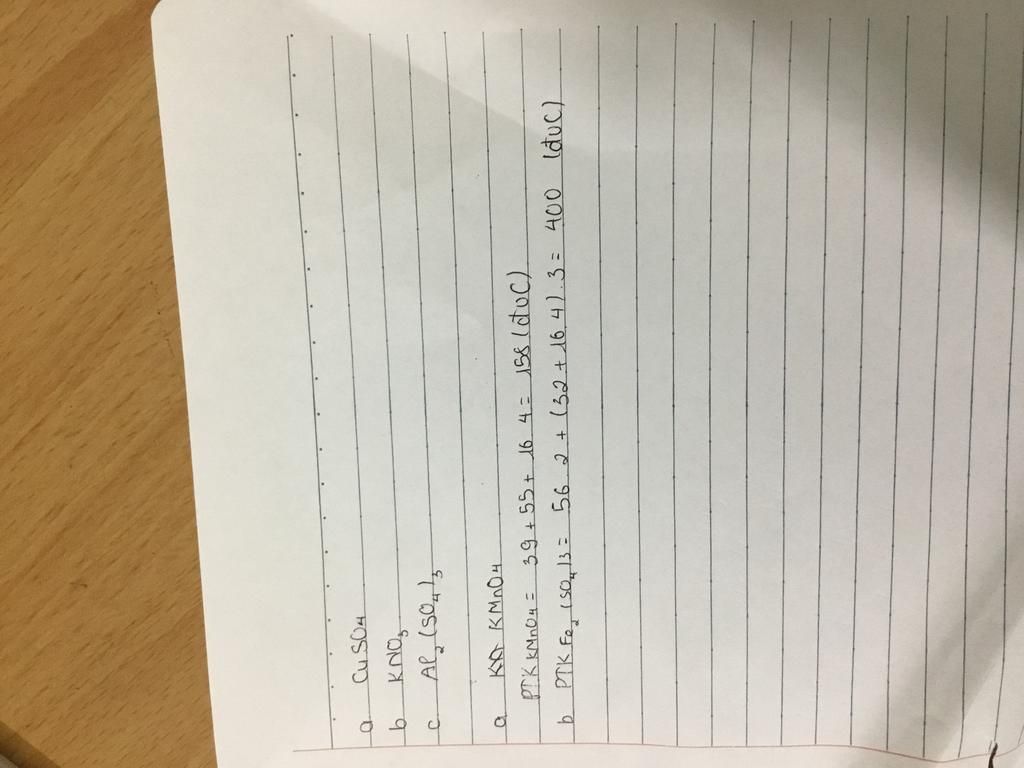 a CuSO4
b KNO3
c Al2(SO4)3
a KMnO4
PTK KMnO4 = 39 + 55 + 16 4 = 158 (đvC)
b PTK Fe2(SO4)3 = 56 2 + (32 + 16 4).3 = 400 (đvC)